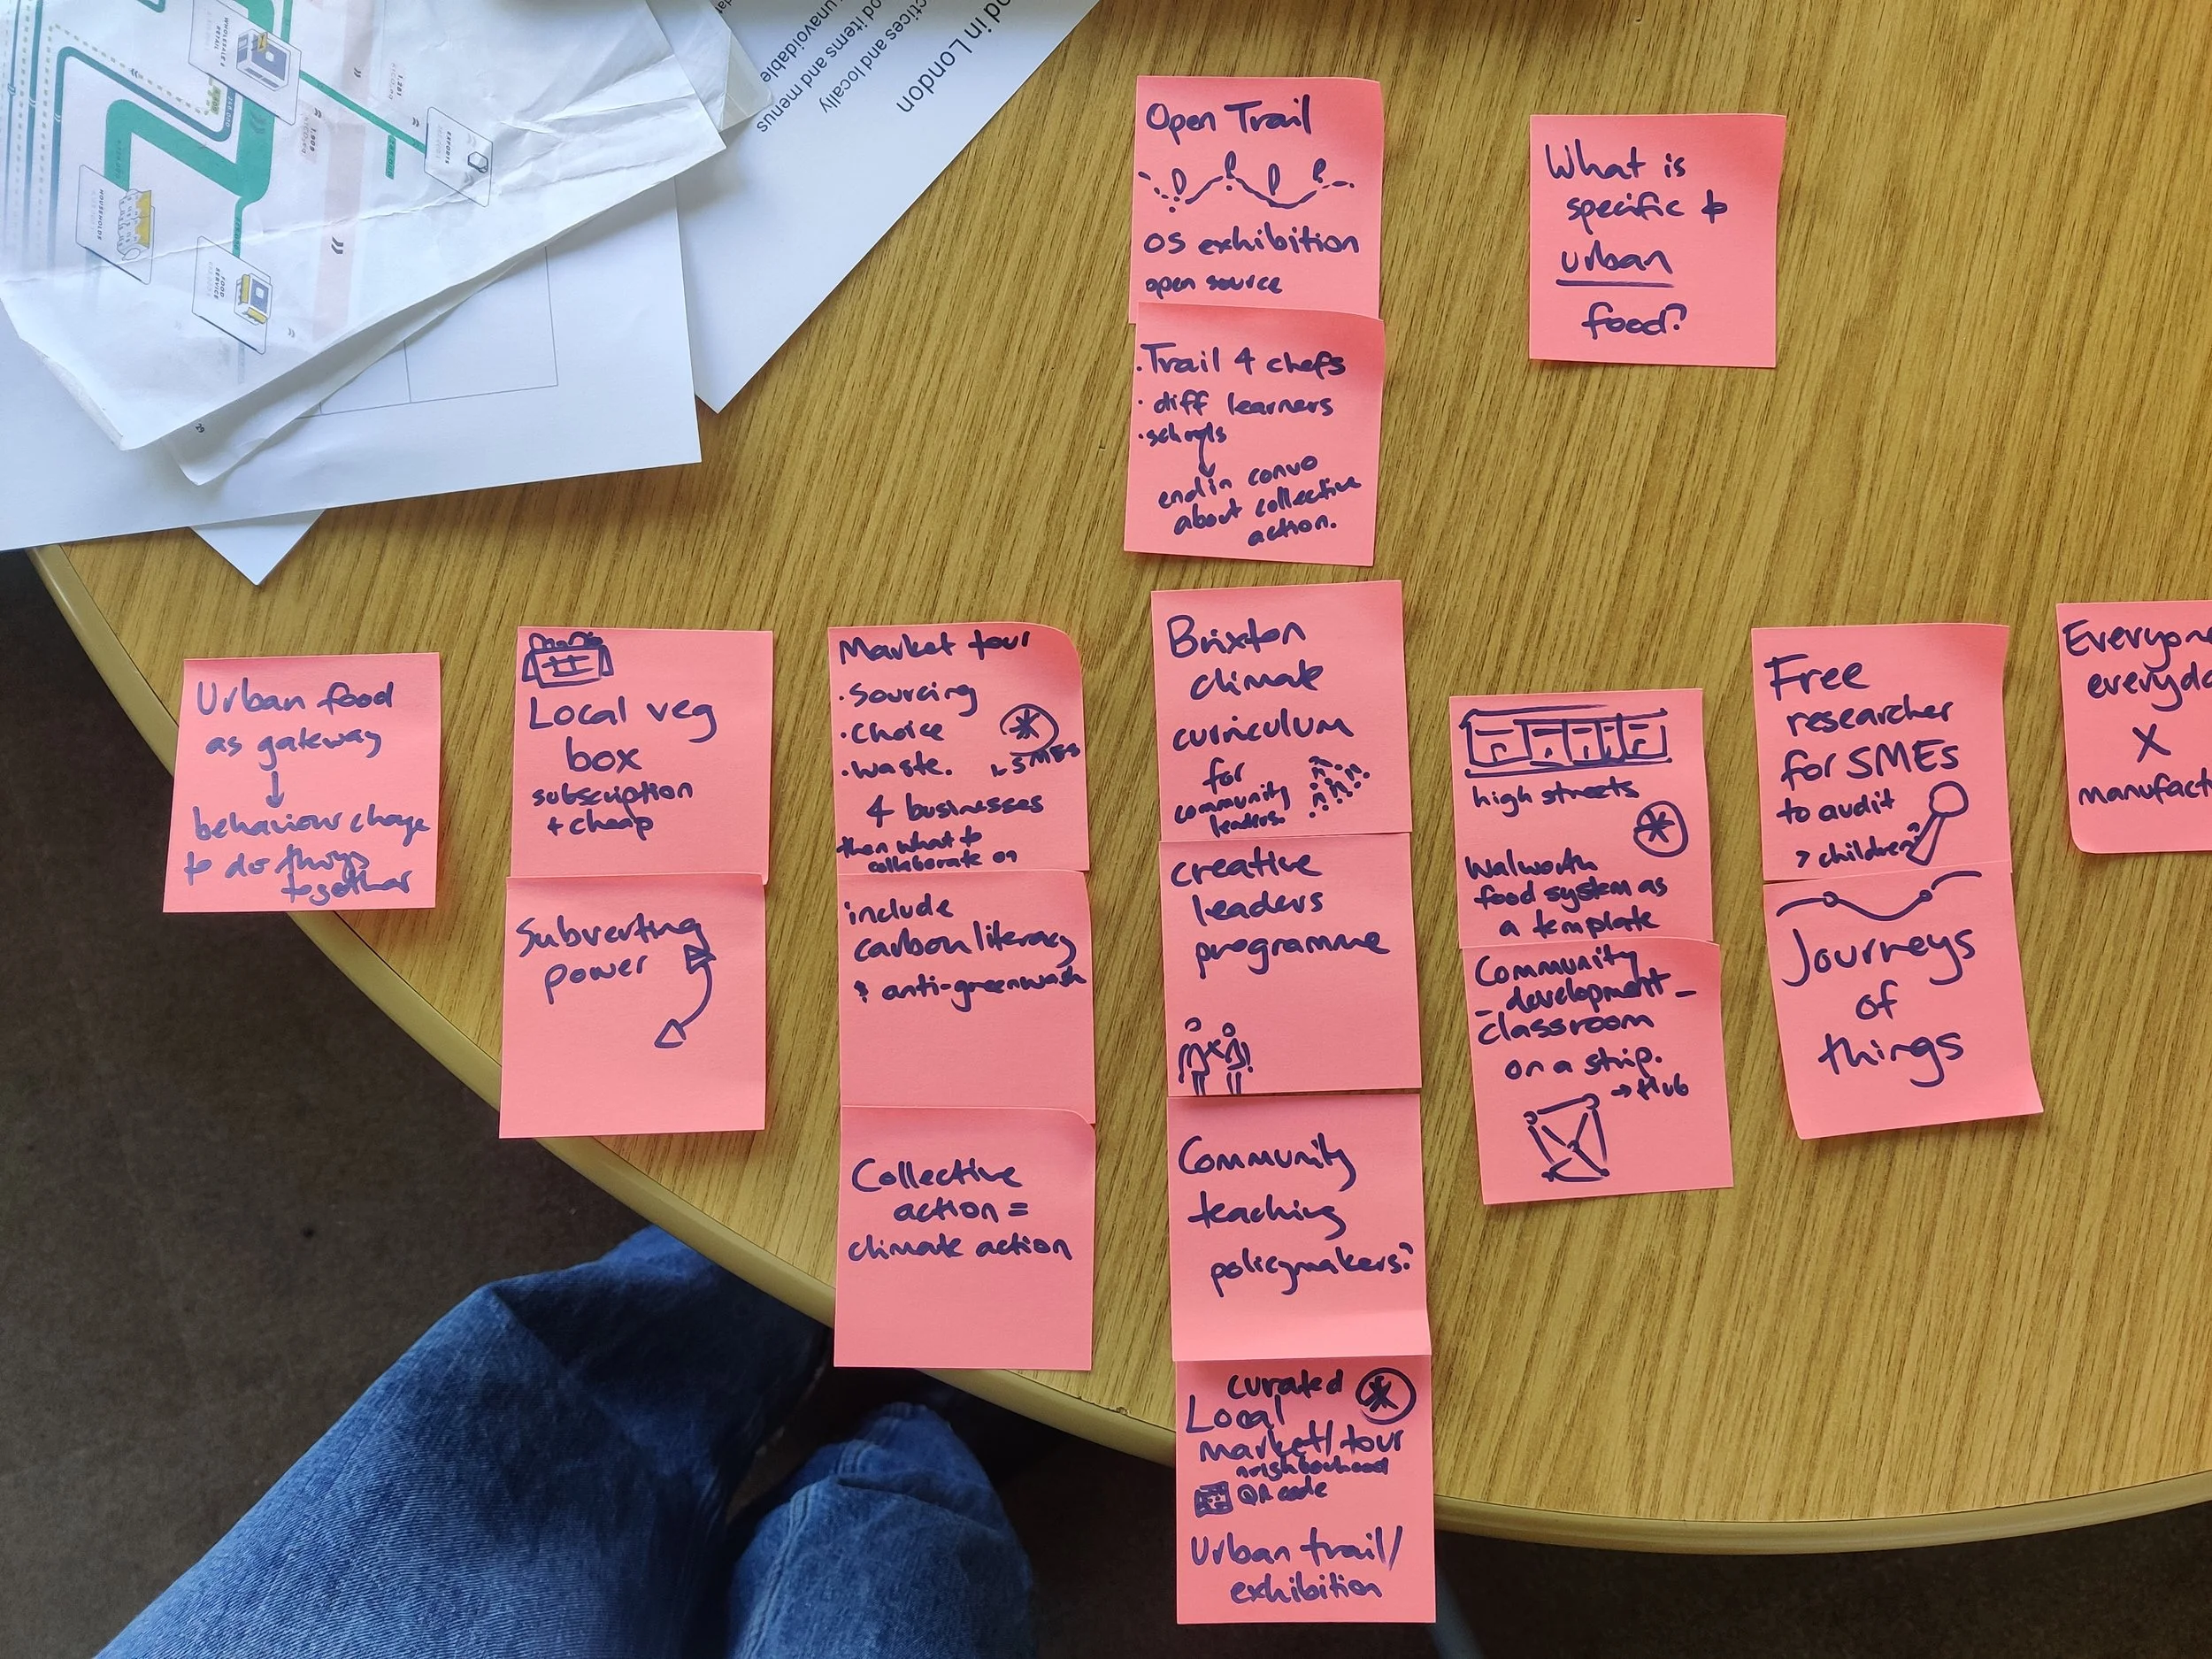 WHOLESALE &
RETAIL
EXPORTS
HOUSEHOLDS
FOOD
SERVICE
1,909
1,281
29
nd in London
ctices and locally
od items and menus
unavoidable
Open Trail
OS exhibition
open source
· Trail 4 chefs
· diff learners
· schools
end in convo
about collective
action.
What is
specific to
urban
food?
Urban food
as gateway
behaviour change
to do things
together
Local veg
box
subscription
+ cheap
Subverting
power
Market tour
· Sourcing
· Choice
· Waste.
SMEs
4 businesses
then what to
collaborate on
include
carbon literacy
& anti-greenwash
Collective
action =
climate action
Brixton
climate
curriculum
for
community
leaders.
creative
leaders
programme
Community
teaching
policymakers?
curated
Local
market/tour
neighbourhood
QR code
Urban trail/
exhibition
high streets
Walworth
food system as
a template
Community
- development -
classroom
on a strip.
→ Hub
Free
researcher
for SMEs
to audit
> children?
Journeys
of
things
Everyon
everyda
X
manufact